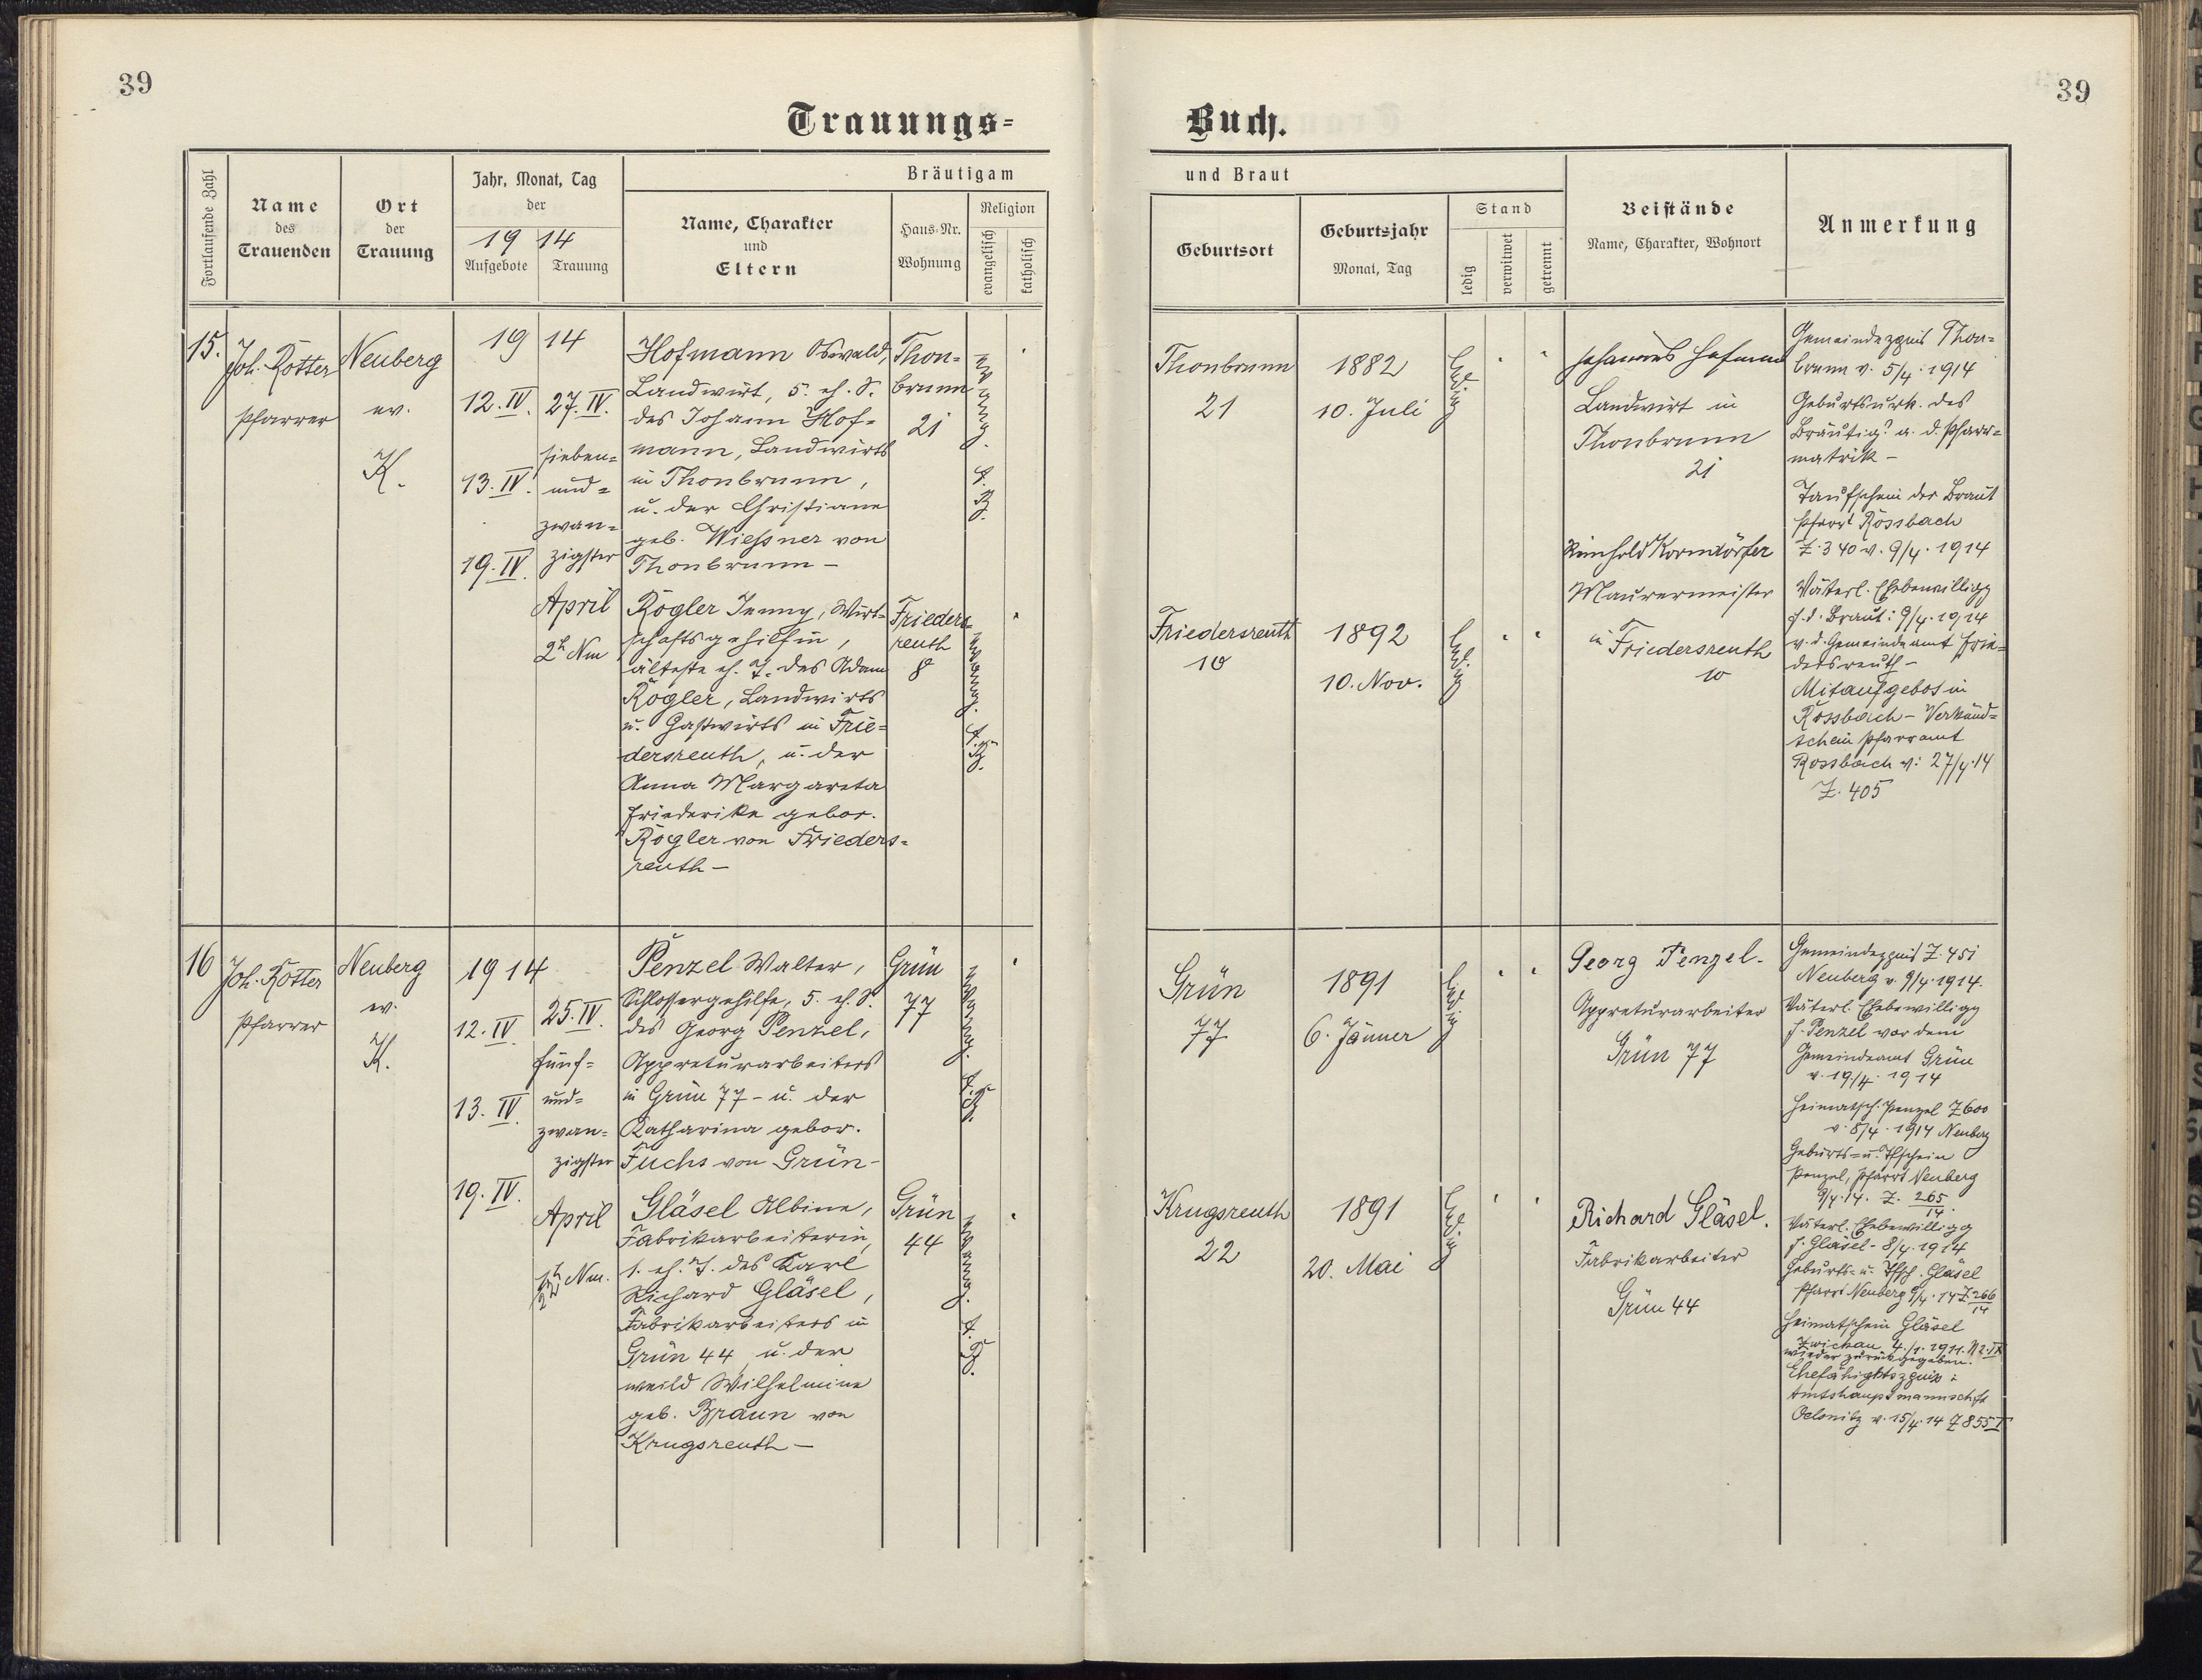 39
39
Trauungs=
Buch.
Fortlaufende Zahl
Name
des
Trauenden
Ort
der
Trauung
Jahr, Monat, Tag
der
19 14
Aufgebote
Trauung
Bräutigam
Name, Charakter
und
Eltern
Haus-Nr.
Wohnung
Religion
evangelisch
katholisch
und Braut
Geburtsort
Geburtsjahr
Monat, Tag
Stand
ledig
verwitwet
getrennt
Beistände
Name, Charakter, Wohnort
Anmerkung
15.
Joh. Rotter
Pfarrer
Neuberg
ev.
K.
19 14
12. IV.
13. IV.
19. IV.
27. IV.
sieben=
und=
zwan=
zigster
April
2h Nm
Hofmann Oswald,
Landwirt, 5. eh. S.
des Johann Hof=
mann, Landwirts
in Thonbrunn,
u. der Christiane
geb. Wiessner von
Thonbrunn –
Thon=
brunn
21
evang.
A. B.
Rogler Jenny, Wirt=
schaftsgehilfin,
älteste eh. T. des Adam
Rogler, Landwirts
u. Gastwirts in Frie=
dersreuth, u. der
Anna Margareta
Friederike gebor.
Rogler von Frieders=
reuth –
Frieders=
reuth
8
evang.
A. B.
Thonbrunn
21
1882
10. Juli
ledig
Friedersreuth
10
1892
10. Nov.
ledig
Johannes Hofmann
Landwirt in
Thonbrunn
21
Reinhold Korndörfer
Maurermeister
in Friedersreuth
10
Gemeindezgnis Thon=
brunn v. 5/4. 1914
Geburtsurk. des
Bräutig. a. d. Pfarr=
matrik –
Taufschein der Braut
Pfarrt Rossbach
Z. 340 v. 9/4. 1914
Väterl. Ehebewilligg
f. d. Braut: 9/4. 1914
v. d. Gemeindeamt Frie=
dersreuth –
Mitaufgebot in
Rossbach – Verkünd=
schein Pfarramt
Rossbach v. 27/4. 14
Z. 405
16
Joh. Rotter
Pfarrer
Neuberg
ev.
K.
19 14
12. IV
13. IV.
19. IV.
25. IV.
fünf=
und=
zwan=
zigster
April
Nm.
Penzel Walter,
Schlossergehilfe, 5. eh. S.
des Georg Penzel,
Appreturarbeiters
in Grün 77 – u. der
Katharina gebor.
Fuchs von Grün –
Grün
77
evang.
A. B.
Gläsel Albine,
Fabrikarbeiterin,
1. eh. T. des Karl
Richard Gläsel,
Fabrikarbeiters in
Grün 44, u. der
weild Wilhelmine
geb. Braun von
Krugsreuth –
Grün
44
evang.
A. B.
Grün
77
1891
6. Jänner
ledig
Krugsreuth
22
1891
20. Mai
ledig
Georg Penzel.
Appreturarbeiter
Grün 77
Richard Gläsel.
Fabrikarbeiter
Grün 44
Gemeindezgnis Z. 451
Neuberg v. 9/4. 1914.
Väterl. Ehebewilligg
f. Penzel vor dem
Gemeindeamt Grün
v. 19/4. 1914
Heimatsch. Penzel Z 600
v. 8/4. 1914 Neuberg
Geburts= u. Tfschein
Penzel, Pfarrt Neuberg
9/4. 14. Z. 265/14.
Väterl. Ehebewilligg
f. Gläsel – 8/4. 1914
Geburts= u. Tfsch. Gläsel
Pfarrt Neuberg 9/4. 14 Z. 266/14
Heimatschein Gläsel
Zwickau 4./1. 1911.
wieder zurückgegeben.
Ehefähigktszgnis:
Amtshauptmannschft
Oelsnitz v. 15/4. 14 Z 855 I